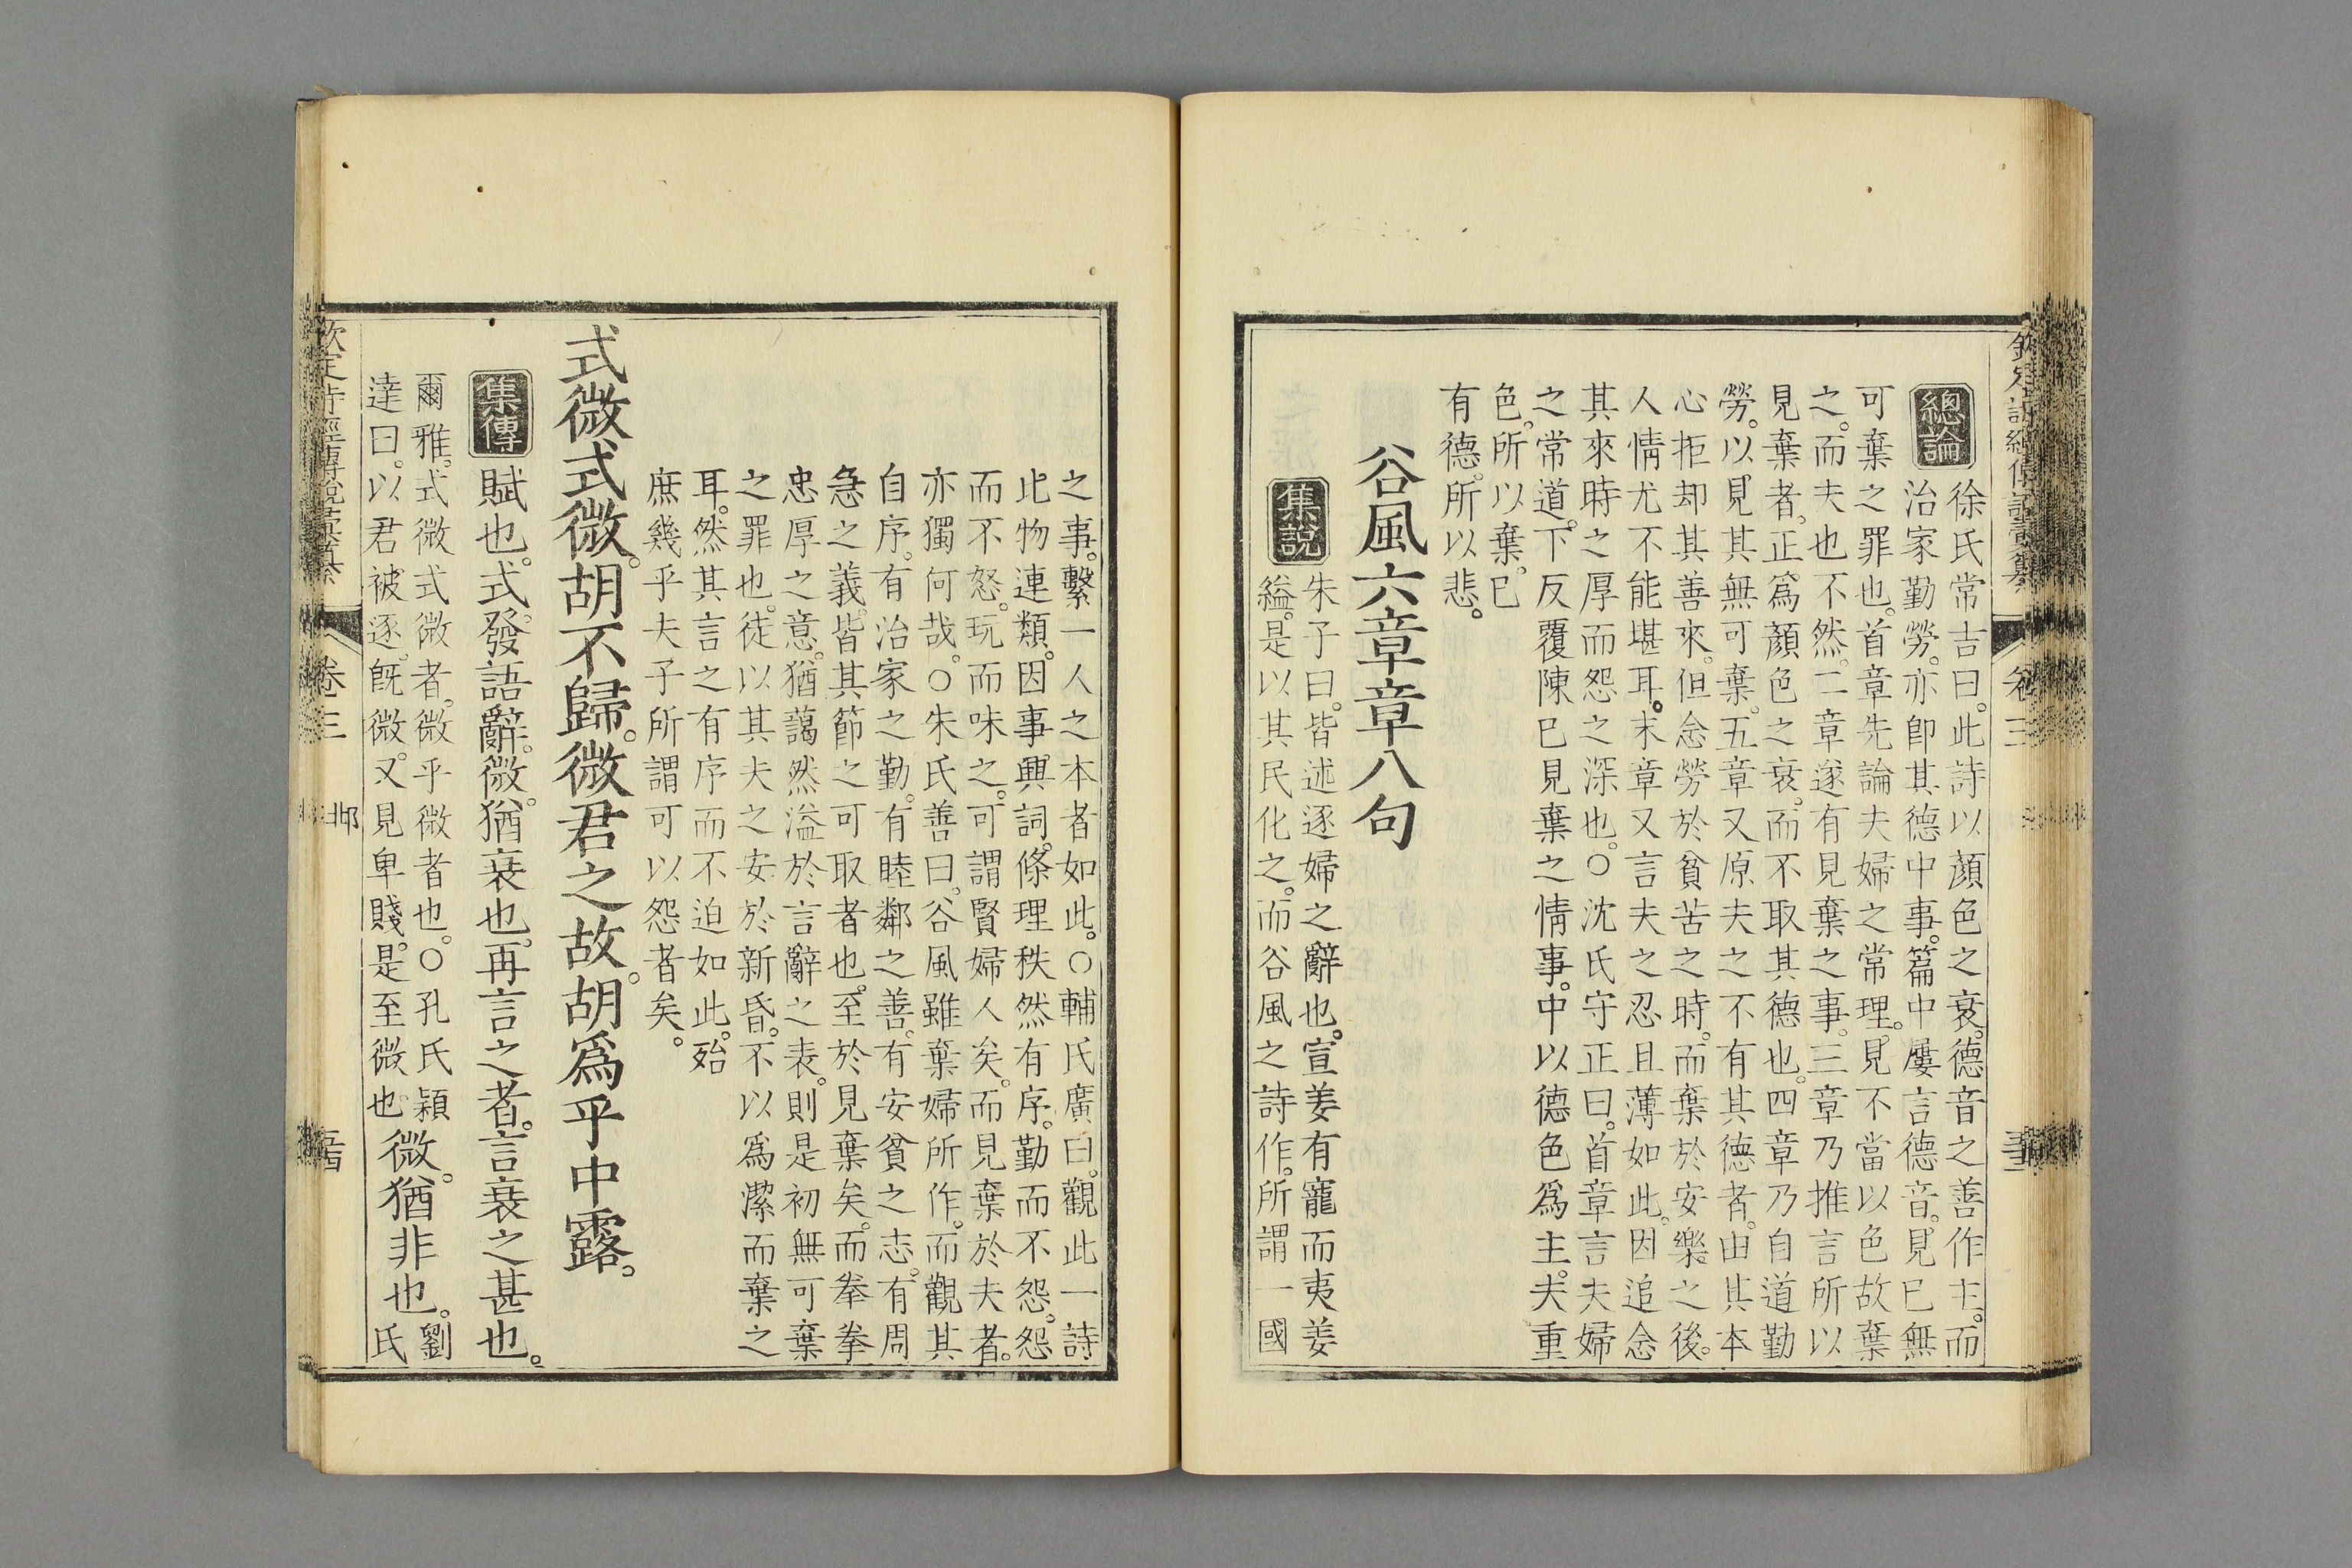 總論
徐氏常吉曰。此詩以顏色之衰。德音之善作主。而
治家勤勞。亦卽其德中事。篇中屢言德音。見已無
可棄之罪也。首章先論夫婦之常理。見不當以色故棄
之。而夫也不然。二章遂有見棄之事。三章乃推言所以
見棄者。正爲顏色之衰。而不取其德也。四章乃自道勤
勞。以見其無可棄。五章又原夫之不有其德者。由其本
心拒却其善來。但念勞於貧苦之時。而棄於安樂之後。
人情尤不能堪耳。末章又言夫之忍且薄如此。因追念
其來時之厚而怨之深也。○沈氏守正曰。首章言夫婦
之常道。下反覆陳已見棄之情事。中以德色爲主。夫重
色。所以棄。已
有德。所以悲。
谷風六章章八句
集說
朱子曰。皆述逐婦之辭也。宣姜有寵而夷姜
縊。是以其民化之。而谷風之詩作。所謂一國
之事。繫一人之本者如此。○輔氏廣曰。觀此一詩
比物連類。因事興詞。條理秩然有序。勤而不怨。怨
而不怒。玩而味之。可謂賢婦人矣。而見棄於夫者。
亦獨何哉。○朱氏善曰。谷風雖棄婦所作。而觀其
自序。有治家之勤。有睦鄰之善。有安貧之志。有周
急之義。皆其節之可取者也。至於見棄矣。而拳拳
忠厚之意。猶藹然溢於言辭之表。則是初無可棄
之罪也。徒以其夫之安於新昏。不以爲潔而棄之
耳。然其言之有序而不迫如此。殆
庶幾乎夫子所謂可以怨者矣。
式微式微。胡不歸。微君之故。胡爲乎中露。
集傳
賦也。式。發語辭。微。猶衰也。再言之者。言衰之甚也。
爾雅。式微式微者。微乎微者也。○孔氏穎
達曰。以君被逐。旣微。又見卑賤。是至微也。
微。猶非也。
劉
氏
欽定詩經傳說彙纂
卷三
邶